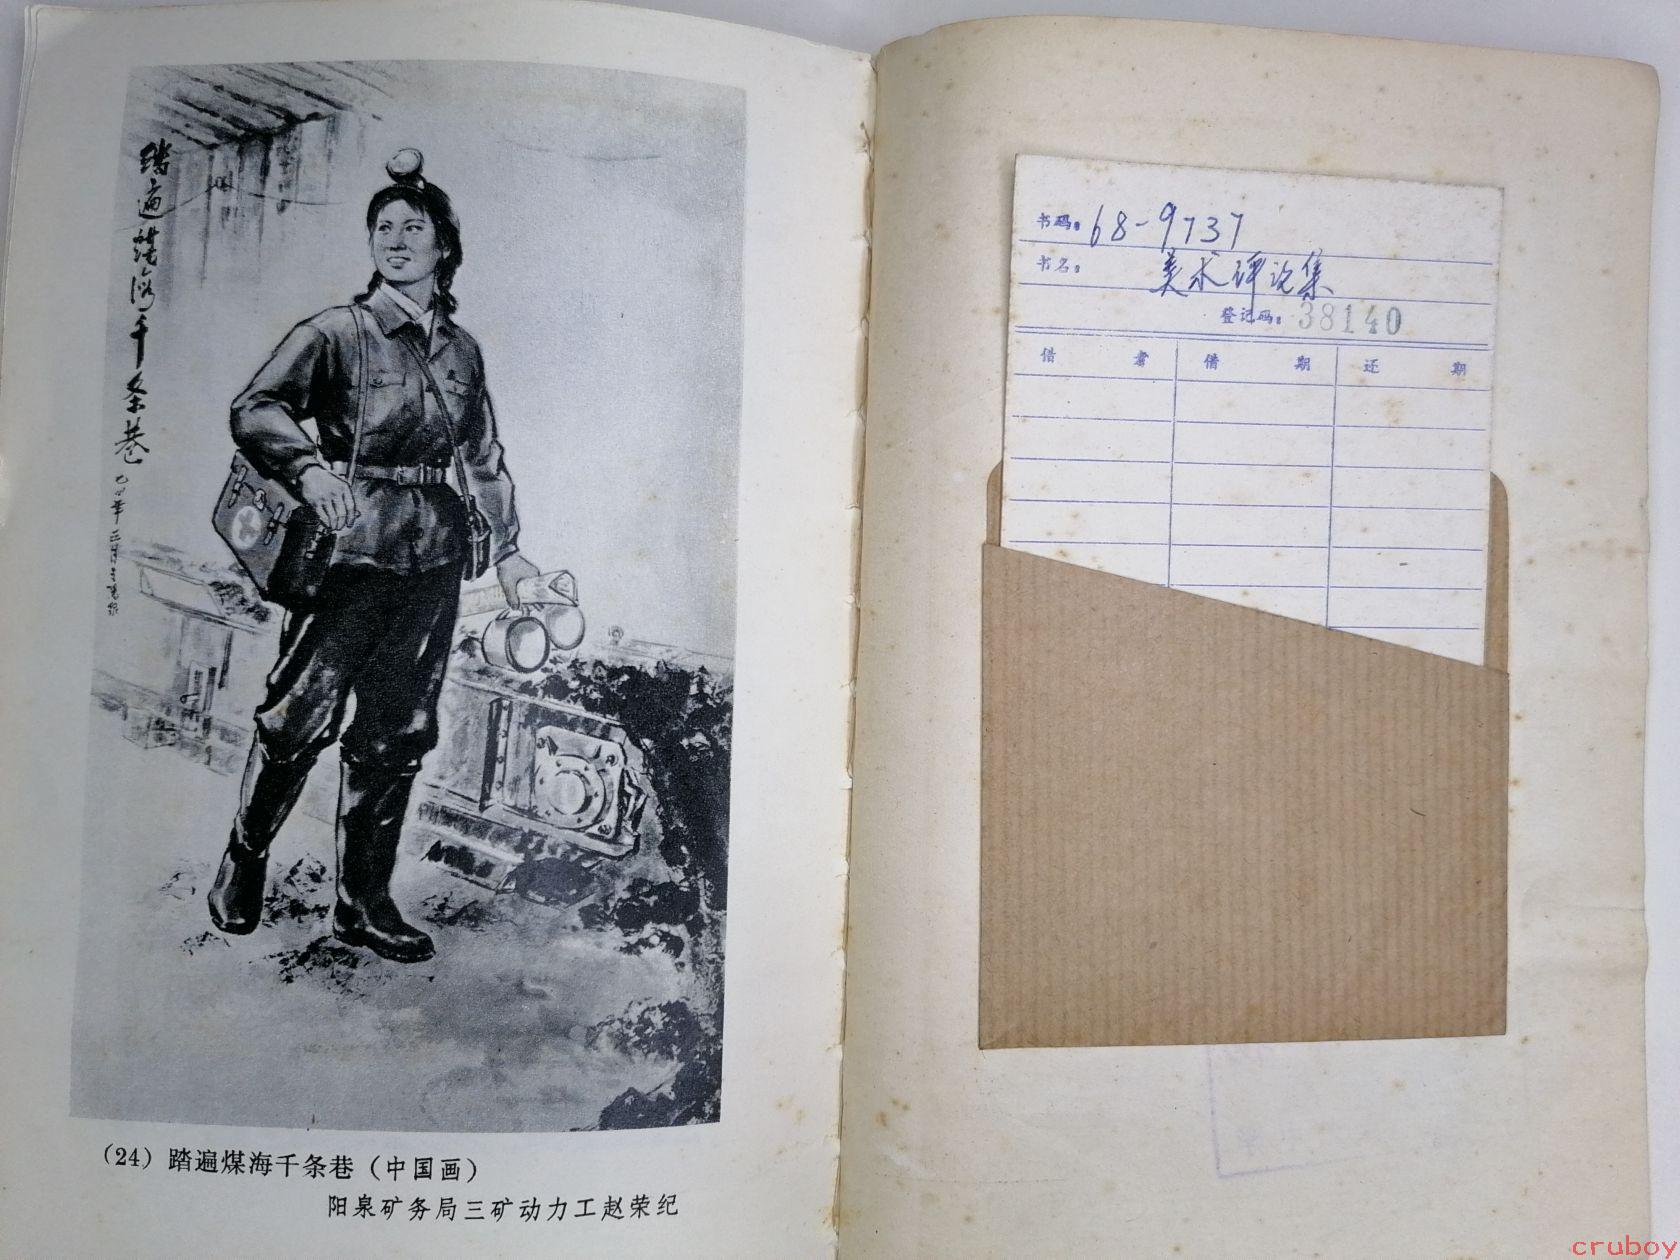 踏遍煤海千条巷
(24) 踏遍煤海千条巷 (中国画)
阳泉矿务局三矿动力工赵荣纪
书码: 68-9737
书名: 美术评论集
登记码: 38140
借者 借期 还期
cruboy